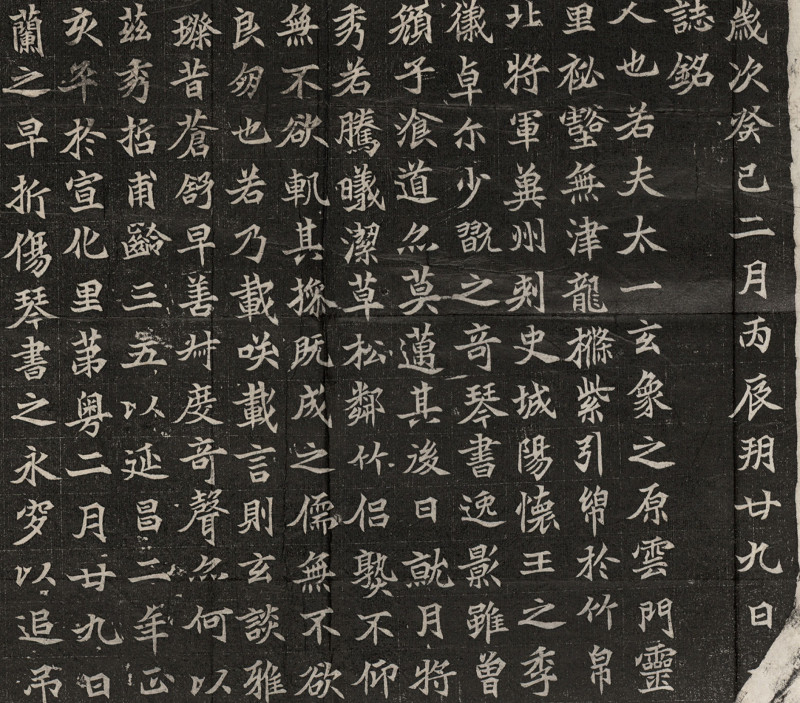 歲次癸巳二月丙辰朔廿九日
誌銘
人也若夫太一玄象之原雲門靈
里祕壑無津龍樤紫引綿於竹帛
北將軍冀州刾史城陽懷王之季
儀卓尒少翫之奇琴書逸影雖曾
顏子飡道亦莫邁其後日就月將
秀若騰曦潔草松鄰竹侶熟不仰
無不欲軌其操既成之儒無不欲
良朋也若乃載咲載言則玄談雅
璨昔蒼舒早善叶度奇聲亦何以
茲秀哲甫齡三五以延昌二年正
亥卒於宣化里第粵二月廿九日
蘭之早折傷琴書之永穸以追吊